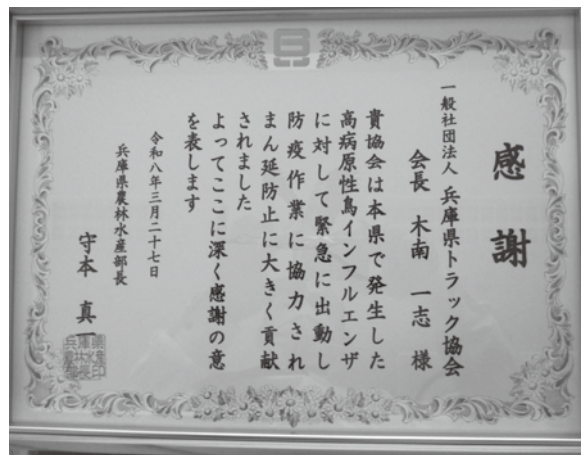 感謝
一般社団法人 兵庫県トラック協会
会長 木南 一志 様
貴協会は本県で発生した
高病原性鳥インフルエンザ
に対して緊急に出動し
防疫作業に協力され
まん延防止に大きく貢献
されました
よってここに深く感謝の意
を表します
令和八年三月二十七日
兵庫県農林水産部長
守本 真一